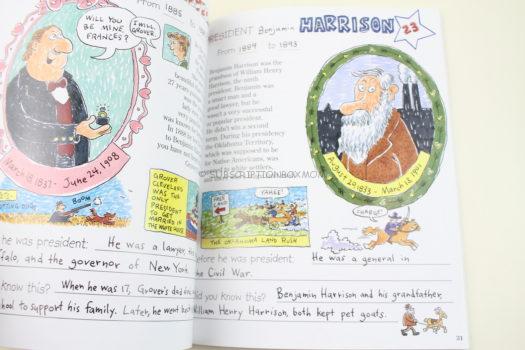 From 1885
WILL YOU
BE MINE,
FRANCES?
I WILL,
GROVER.
beautiful
27 years
was know
In 1908 he
to Benjamin
you have and
March 18, 1837 - June 24, 1908
BOOM
GROVER
CLEVELAND
WAS THE
ONLY
PRESIDENT
TO GET
MARRIED IN
THE WHITE HOUSE
he was president: He was a lawyer,
falo, and the governor of New York.
know this? When he was 17, Grover's dad
hool to support his family. Later, he went
PRESIDENT Benjamin HARRISON
23
From 1889 to 1893
Benjamin Harrison was the
grandson of William Henry
Harrison, the ninth
president. Benjamin was
a smart man and a
good lawyer, but he
wasn't a very successful
or popular president.
He didn't win a second
term. During his presidency
the Oklahoma Territory,
which was supposed to be
for Native Americans, was
opened to white settlers.
August 20, 1833 - March 13, 1901
SUBSCRIPTIONBOXMOM
FREE
LAND
YAHEE!
THE OKLAHOMA LAND RUSH
CHARGE!
Before he was president: He was a general in
the Civil War.
Did you know this? Benjamin Harrison and his grandfather,
William Henry Harrison, both kept pet goats.
31